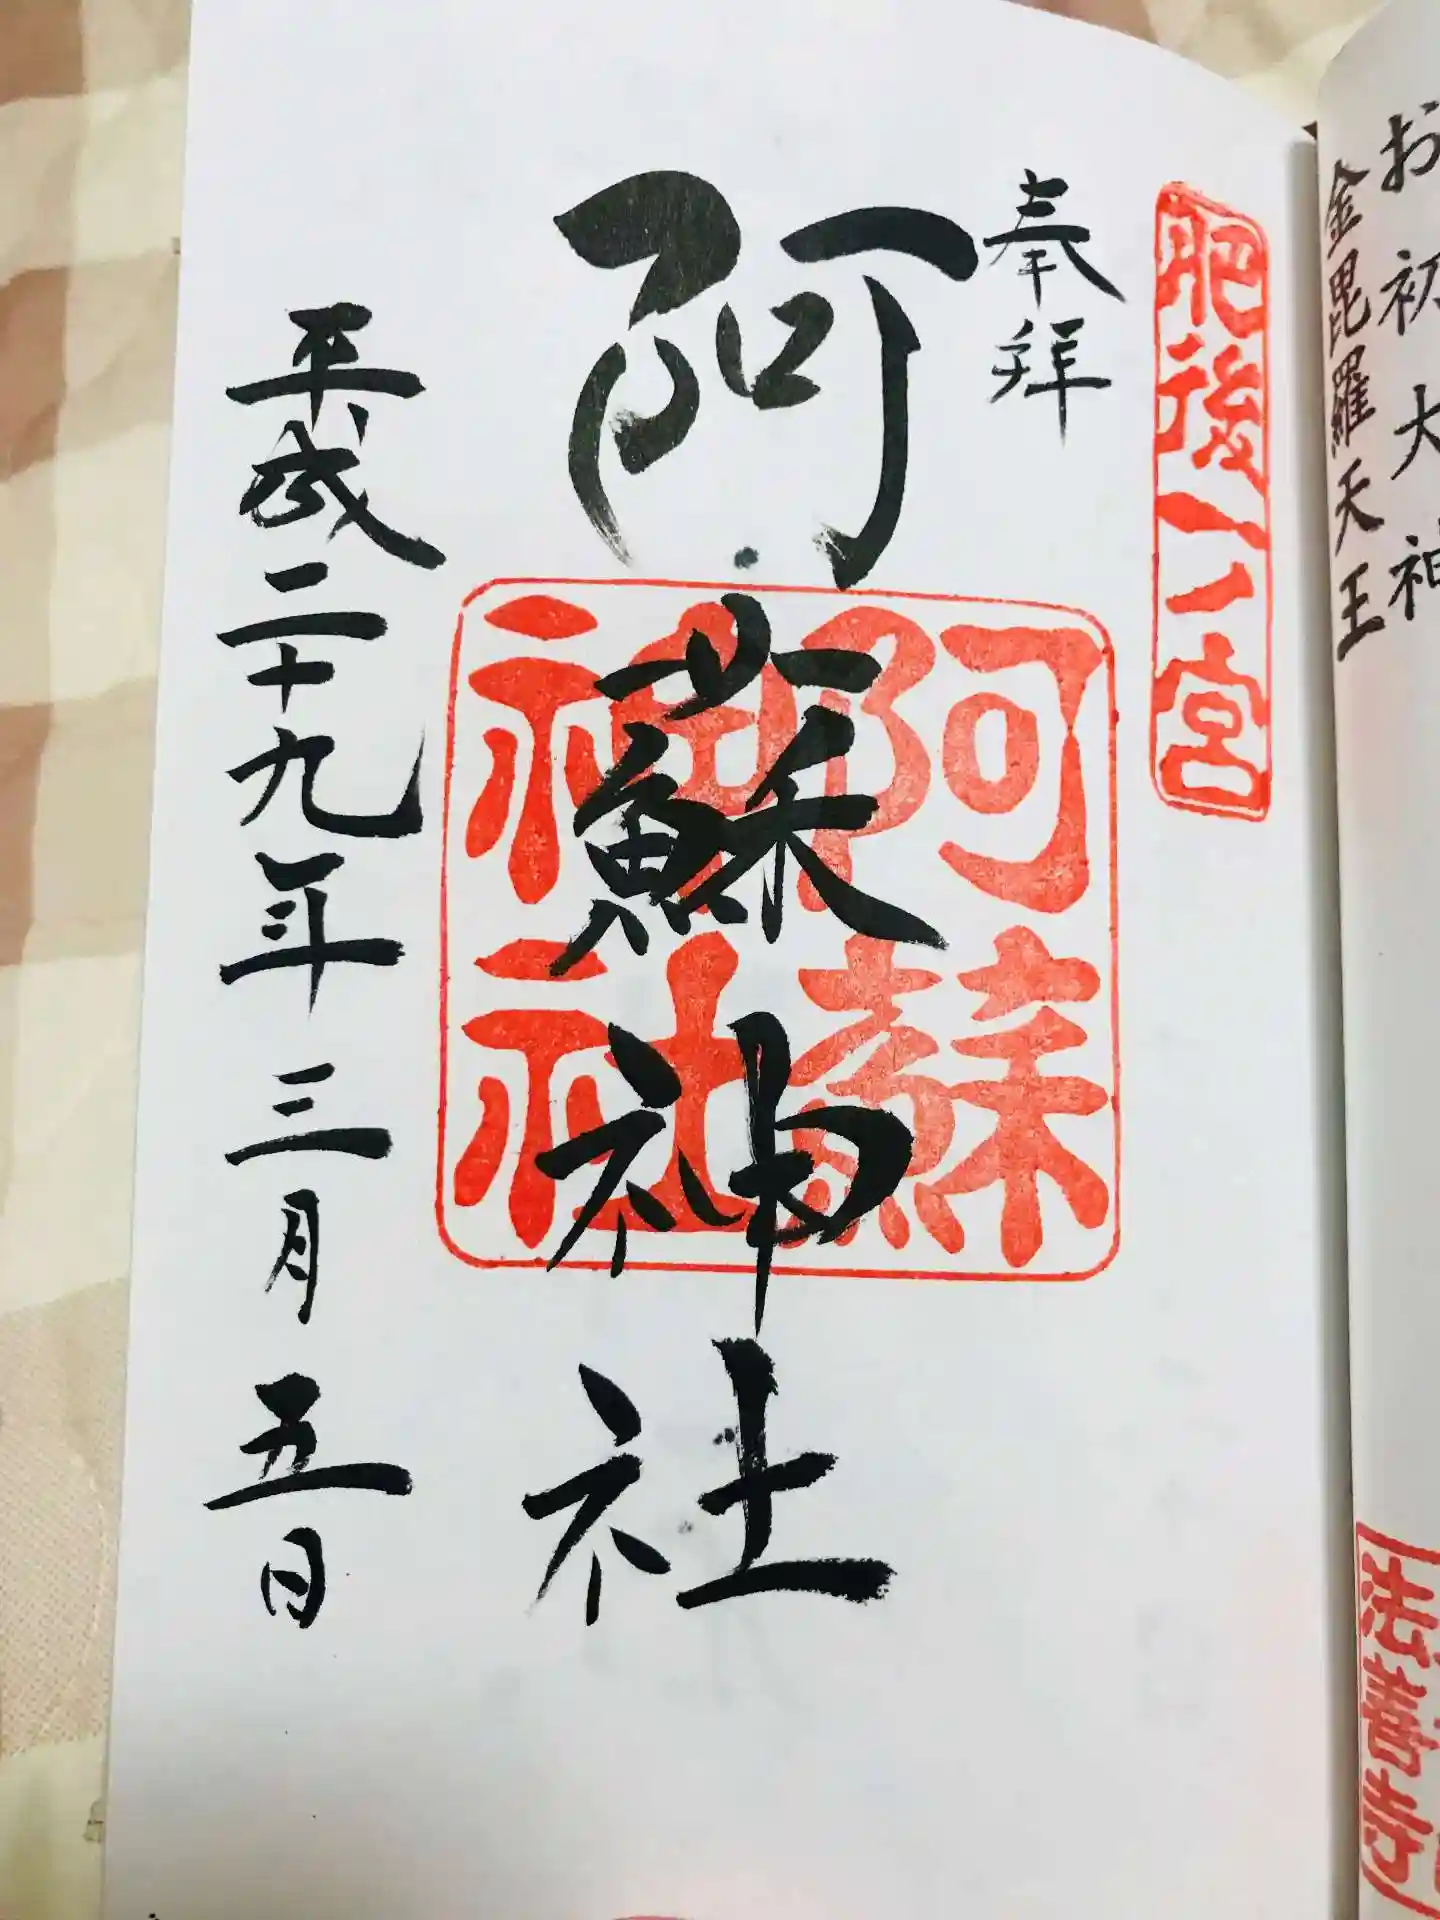 お初大神
金毘羅天王
法善寺
肥後一ノ宮
奉拜
阿蘇神社
阿蘇
神社
平成二十九年三月五日